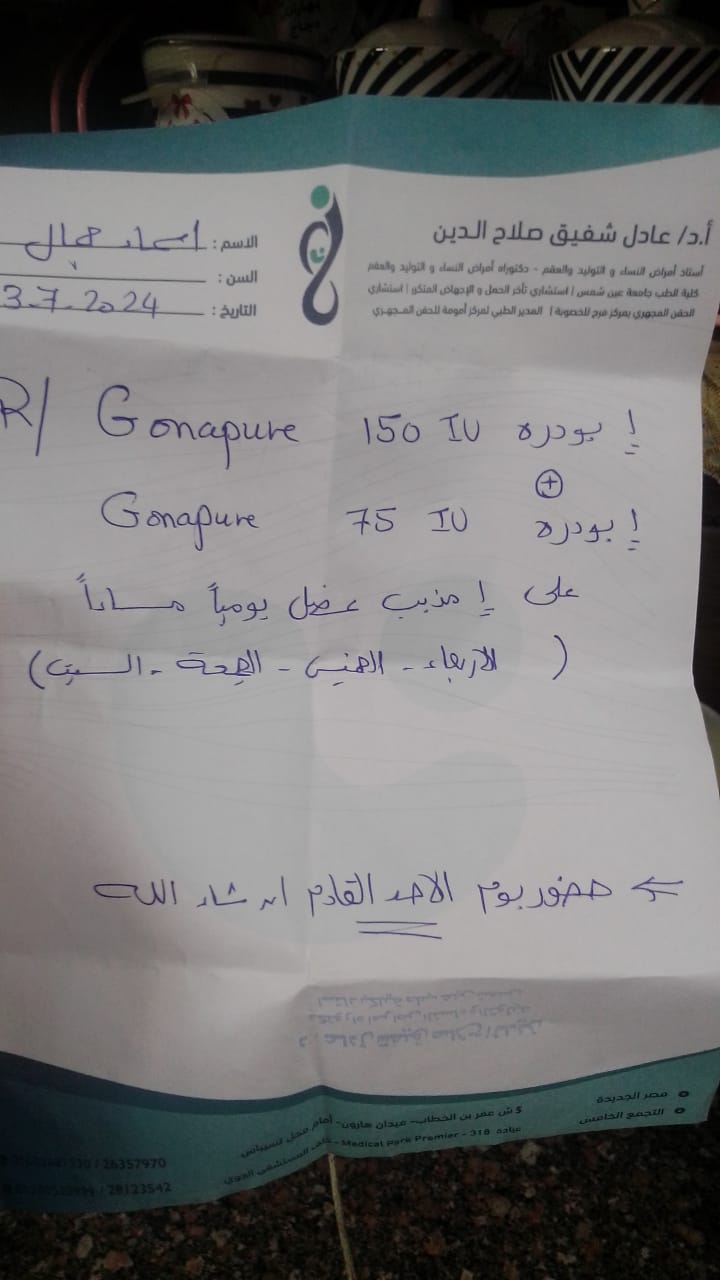 أ.د/ عادل شفيق صلاح الدين
أستاذ أمراض النساء و التوليد والعقم - دكتوراه أمراض النساء و التوليد والعقم
كلية الطب جامعة عين شمس | استشاري تأخر الحمل و الإجهاض المتكرر | استشاري
الحقن المجهري بمركز فرح للخصوبة | المدير الطبي لمركز أمومة للحقن المجهري
الاسم : جمال
السن :
التاريخ : 3.7.2024
R/ Gonapure 150 IU إ بودره
+
Gonapure 75 IU إ بودره
على إ مذيب عضل يومياً مساءاً
(الاربعاء - الخميس - الجمعة - السبت)
← حضور يوم الاحد القادم ان شاء الله
مصر الجديدة
5 ش عمر بن الخطاب - ميدان هارون - أمام محل تسيباس
التجمع الخامس
عيادة 318 - Medical Park Premier - خلف المستشفى الجوي
/ 26357970
/ 28123542